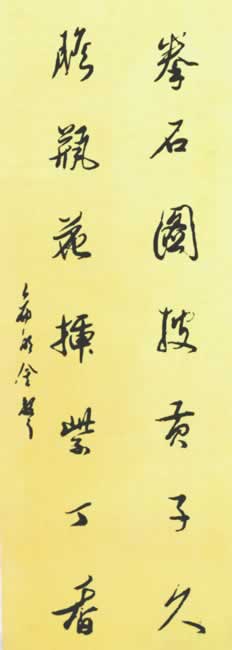 拳石圖披黃子久
膽瓶花插紫丁香